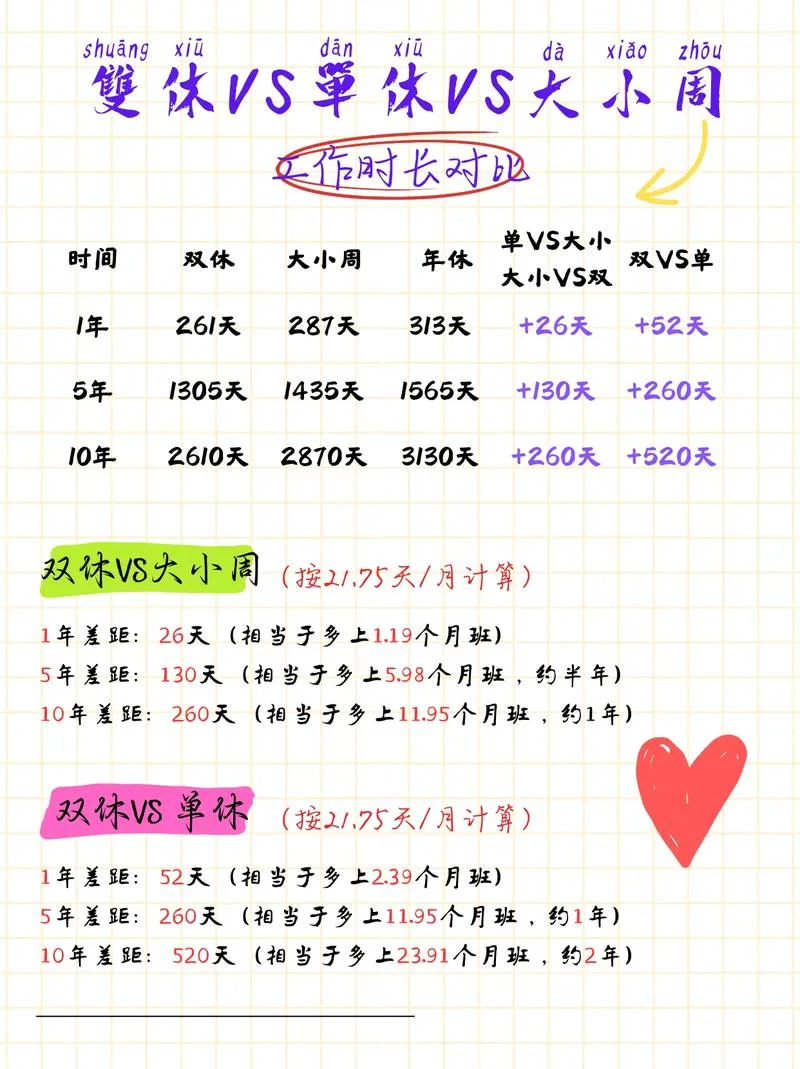 shuāng xiū dān xiū dà xiǎo zhōu
雙休VS單休VS大小周
工作时长对比
时间 双休 大小周 年休 单VS大小 双VS单
大小VS双
1年 261天 287天 313天 +26天 +52天
5年 1305天 1435天 1565天 +130天 +260天
10年 2610天 2870天 3130天 +260天 +520天
双休VS大小周（按21.75天/月计算）
1年差距：26天（相当于多上1.19个月班）
5年差距：130天（相当于多上5.98个月班，约半年）
10年差距：260天（相当于多上11.95个月班，约1年）
双休VS 单休（按21.75天/月计算）
1年差距：52天（相当于多上2.39个月班）
5年差距：260天（相当于多上11.95个月班，约1年）
10年差距：520天（相当于多上23.91个月班，约2年）